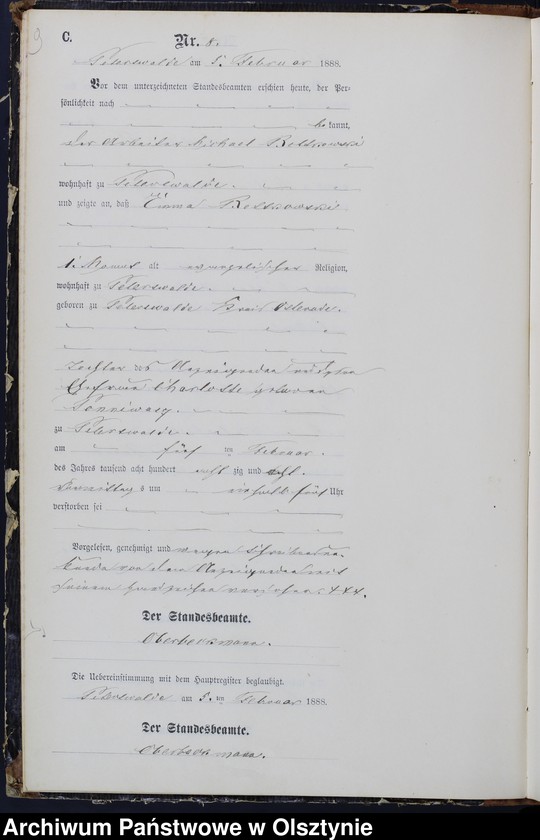 9
C.
Nr. 8.
Peterswalde am 5. Februar 1888.
Vor dem unterzeichneten Standesbeamten erschien heute, der Per-
sönlichkeit nach
bekannt,
der Arbeiter Michael
wohnhaft zu Peterswalde.
und zeigte an, daß Emma
1. Monat alt evangelischer Religion,
wohnhaft zu Peterswalde.
geboren zu Peterswalde Kreis Osterode.
Tochter des Anzeigenden und seiner
Ehefrau Charlotte geborenen
zu Peterswalde.
am fünf ten Februar.
des Jahres tausend acht hundert acht zig und acht.
Vormittags um fünf Uhr
verstorben sei
Vorgelesen, genehmigt und wegen Schreibensun-
kunde von dem Anzeigenden mit
seinem Handzeichen versehen. +++.
Der Standesbeamte.
Die Uebereinstimmung mit dem Hauptregister beglaubigt.
Peterswalde am 5. ten Februar 1888.
Der Standesbeamte.
Archiwum Państwowe w Olsztynie